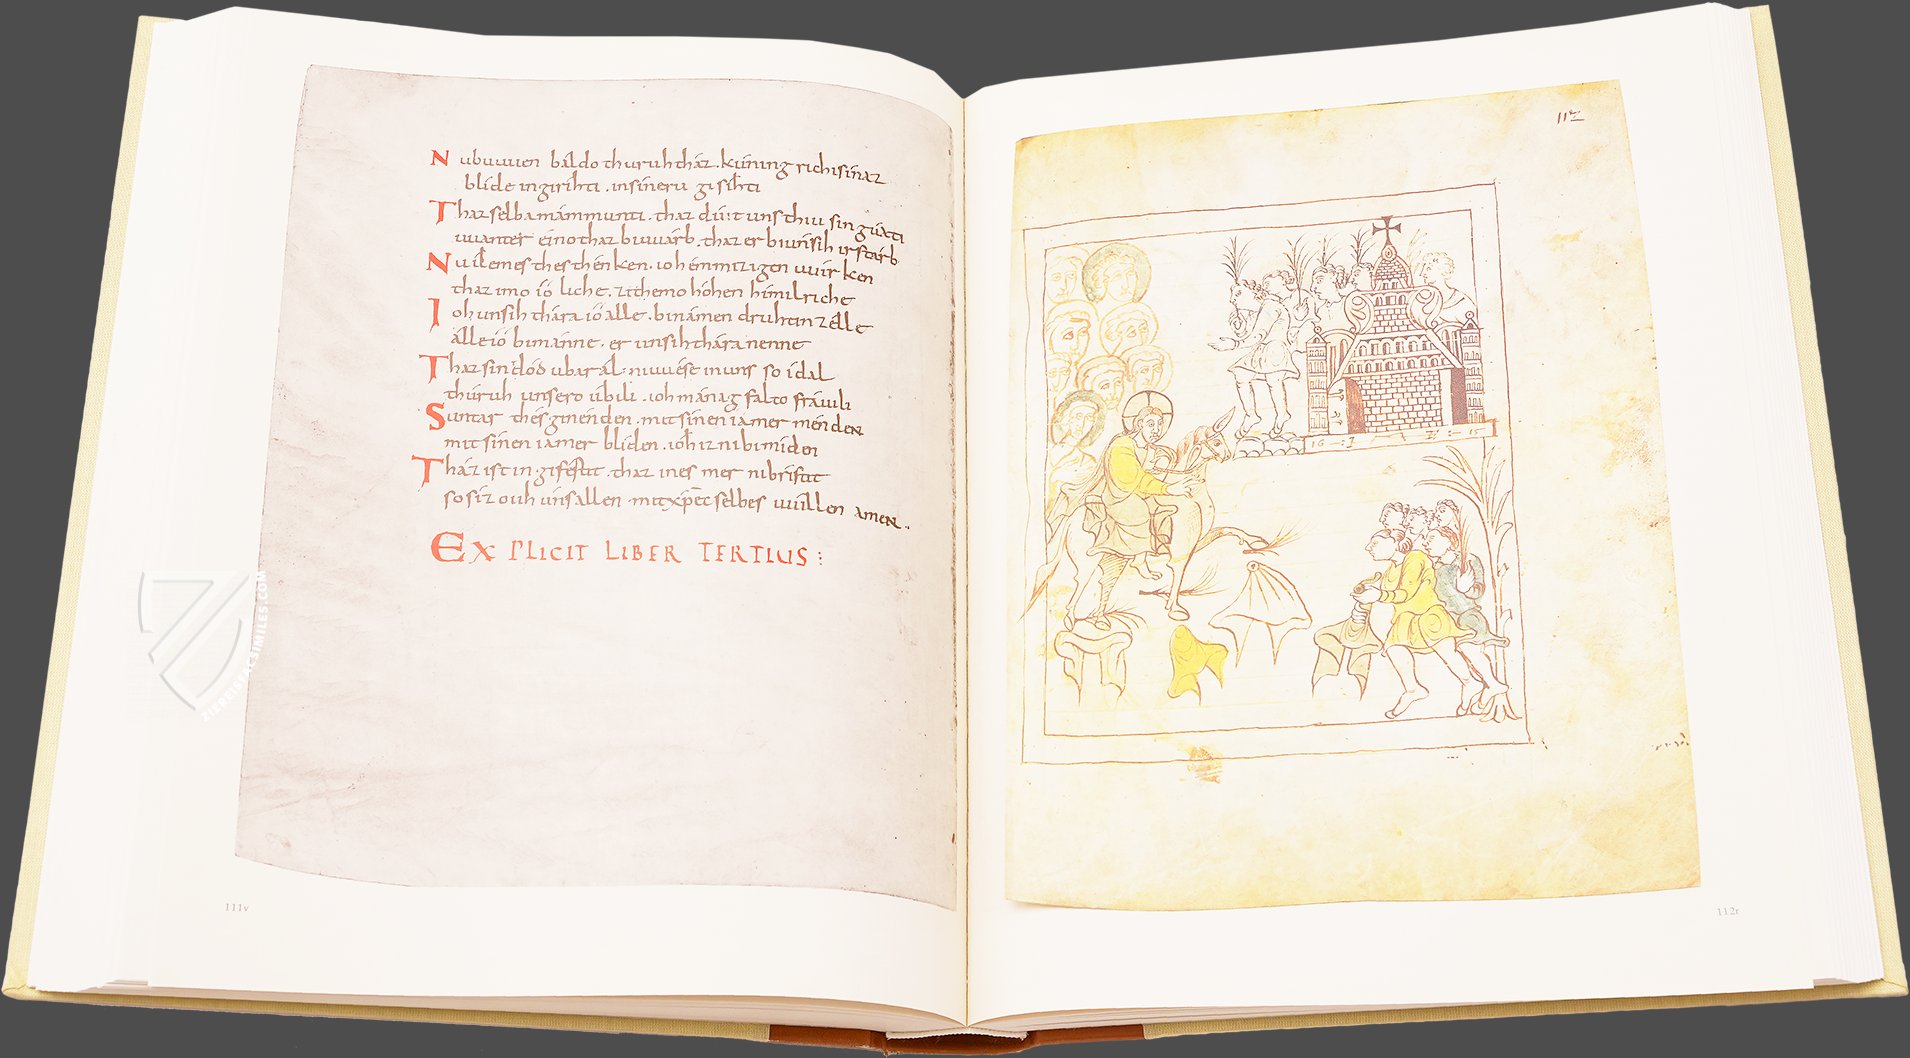 Nubuuuen báldo thuruh thár. kúning richi sinaz
blide in girihti. in sineru gisihti
Thar selba mámmunti. thaz dúit uns thiu sin gúati
uuanter éino thaz biuuárb. thaz er bi únsih irstárb
Nu ílemes thes thénken. ioh émmizigen uuirken
thaz imo ío liche. zi themo hóhen hímilriche
Ioh unsih thára ío alle. bi námen druhtin zélle
álle ío bi mánne. er unsih thára nenne
Thaz sin dód ubar ál. ni uuése in uns so ídal
thúruh unsero úbili. ioh mánagfalto fráuili
Suntar thés ginénden. mit sinen iamer ménden
mit sinen iamer blíden. ioh iz ni bimíden
Tház ist in giféstit. thaz in es mer ni brístit
so si iz ouh úns allen mit xpēc selbes uuillen amen.
EXPLICIT LIBER TERTIUS:
111v
112
112r
ZIEREISFACSIMILES.COM